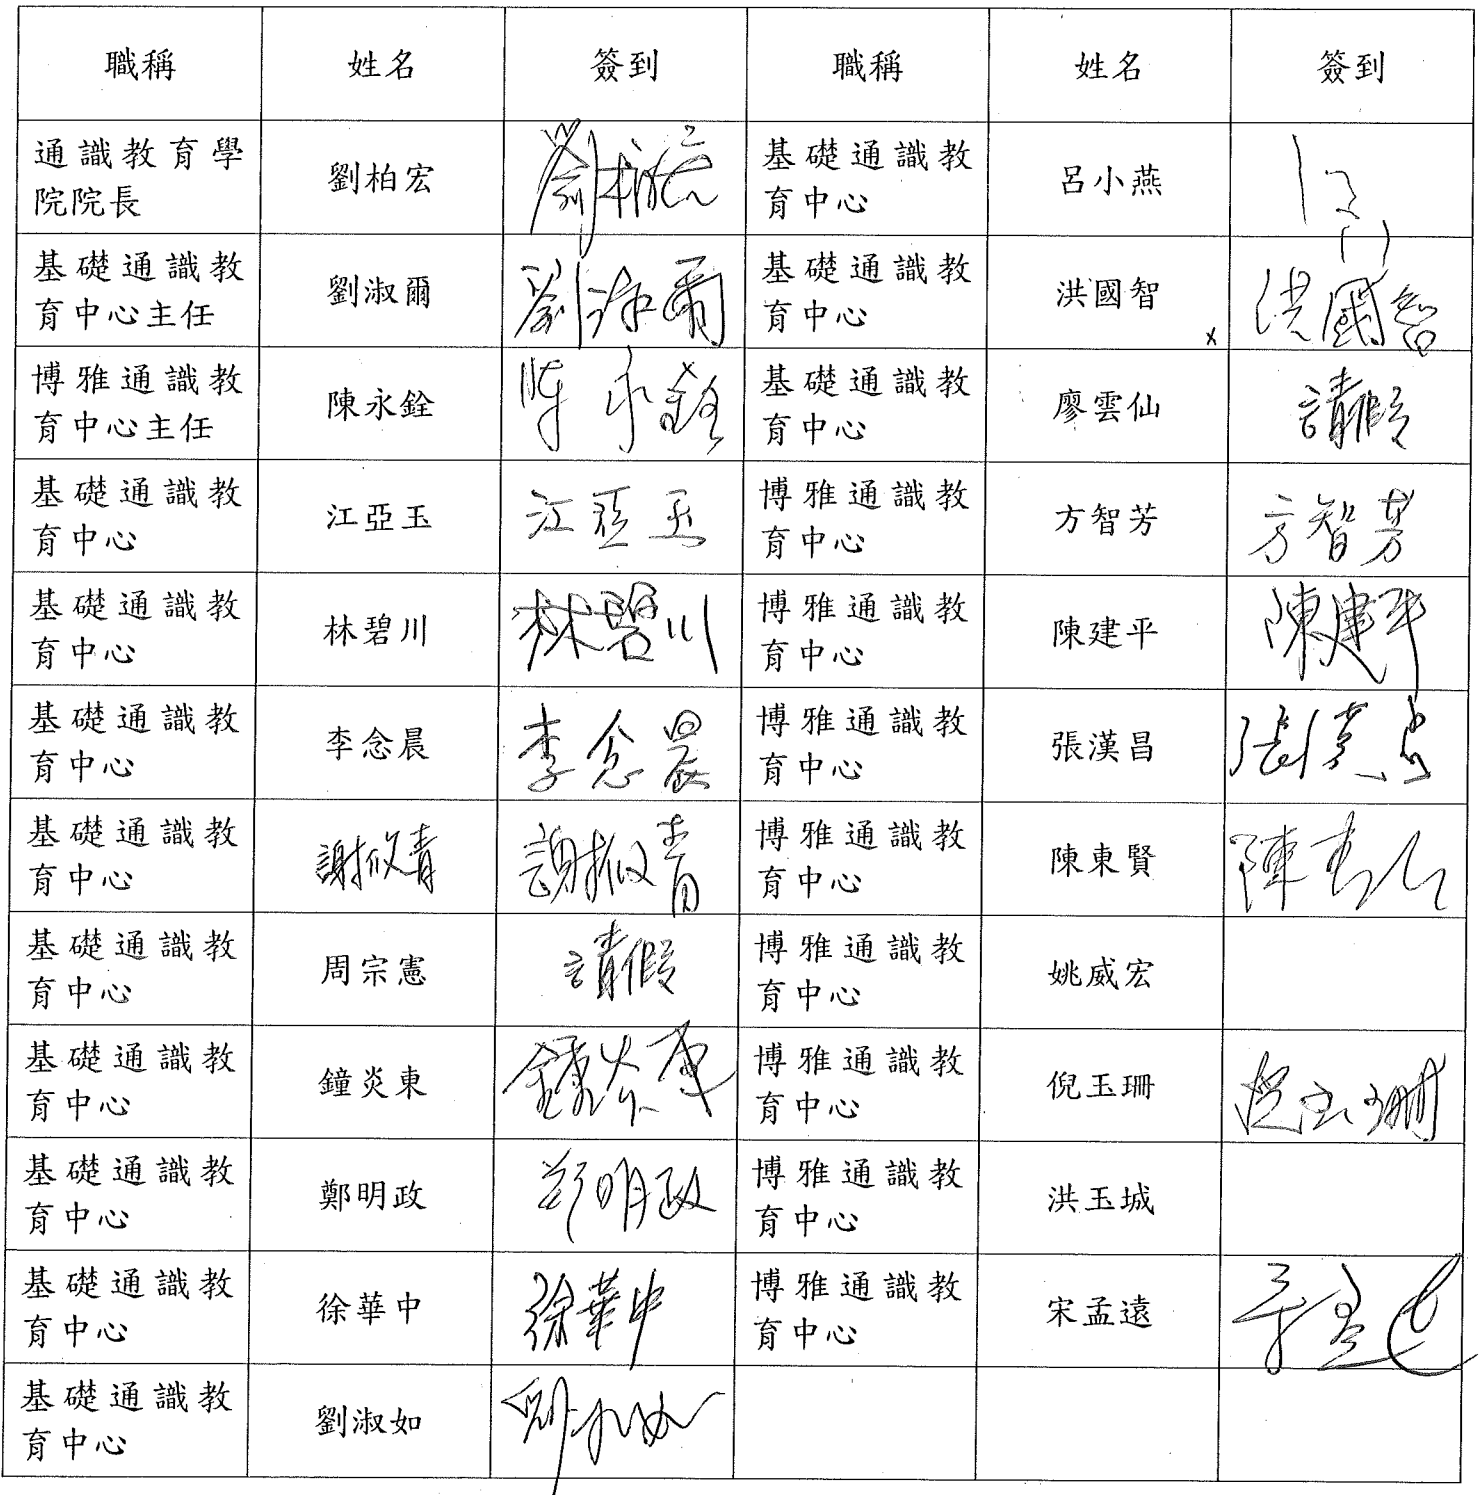 職稱 姓名 簽到 職稱 姓名 簽到
通識教育學院院長 劉柏宏 劉柏宏 基礎通識教育中心 呂小燕
基礎通識教育中心主任 劉淑爾 劉淑爾 基礎通識教育中心 洪國智 x 洪國智
博雅通識教育中心主任 陳永銓 陳永銓 基礎通識教育中心 廖雲仙 請假
基礎通識教育中心 江亞玉 江亞玉 博雅通識教育中心 方智芳 方智芳
基礎通識教育中心 林碧川 林碧川 博雅通識教育中心 陳建平 陳建平
基礎通識教育中心 李念晨 李念晨 博雅通識教育中心 張漢昌 張漢昌
基礎通識教育中心 博雅通識教育中心 陳東賢
基礎通識教育中心 周宗憲 請假 博雅通識教育中心 姚威宏
基礎通識教育中心 鐘炎東 鐘炎東 博雅通識教育中心 倪玉珊 倪玉珊
基礎通識教育中心 鄭明政 鄭明政 博雅通識教育中心 洪玉城
基礎通識教育中心 徐華中 徐華中 博雅通識教育中心 宋孟遠
基礎通識教育中心 劉淑如